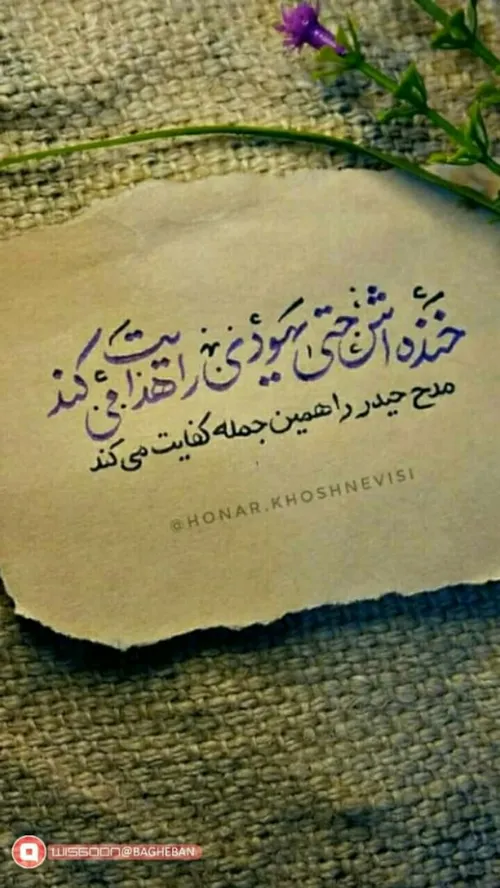 خنده اش حتی یهودی را هدایت می کند
مدح حیدر را همین جمله کفایت می کند
@HONAR.KHOSHNEVISI
WISGOON@BAGHEBAN